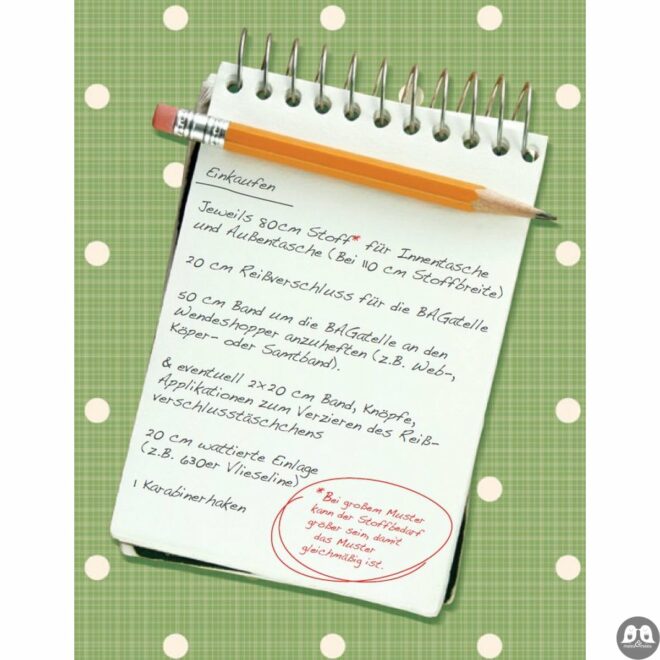 Einkaufen
Jeweils 80cm Stoff* für Innentasche
und Außentasche (Bei 110 cm Stoffbreite)
20 cm Reißverschluss für die BAGatelle
50 cm Band um die BAGatelle an den
Wendeshopper anzuheften (z.B. Web-,
Köper- oder Samtband).
& eventuell 2x20 cm Band, Knöpfe,
Applikationen zum Verzieren des Reiß-
verschlusstäschchens
20 cm wattierte Einlage
(z.B. 630er Vlieseline)
1 Karabinerhaken
*Bei großem Muster
kann der Stoffbedarf
größer sein, damit
das Muster
gleichmäßig ist.